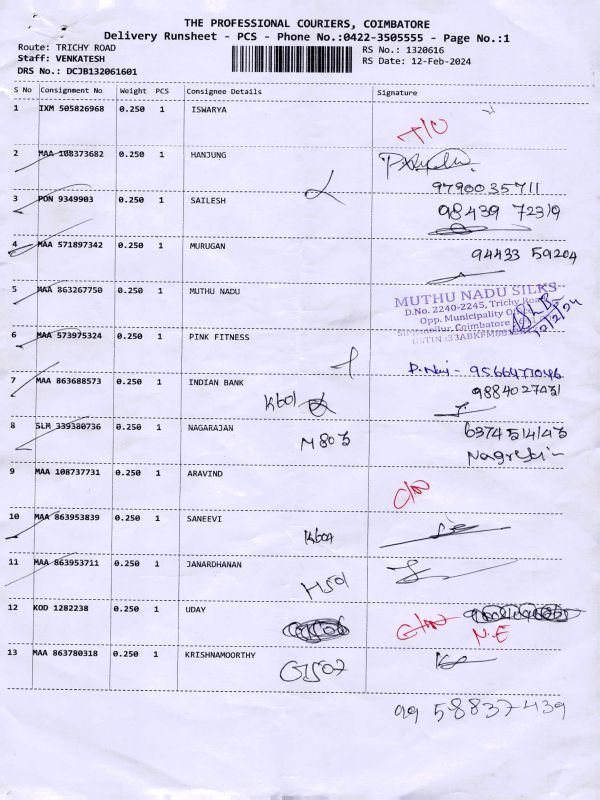 THE PROFESSIONAL COURIERS, COIMBATORE
Delivery Runsheet - PCS - Phone No.:0422-3505555 - Page No.:1
Route: TRICHY ROAD
Staff: VENKATESH
DRS No.: DCJB132061601
RS No.: 1320616
RS Date: 12-Feb-2024
S No Consignment No Weight PCS Consignee Details Signature
1 IXM 505826968 0.250 1 ISWARYA
2 MAA 108373682 0.250 1 HANJUNG
9790035711
3 PON 9349903 0.250 1 SAILESH 98439 72319
4 MAA 571897342 0.250 1 MURUGAN 94433 59204
5 MAA 863267750 0.250 1 MUTHU NADU
MUTHU NADU SILKS
D.No. 2240-2245, Trichy Road
Opp. Municipality Office
Coimbatore
12/2/24
6 MAA 573975324 0.250 1 PINK FITNESS
9566471046
7 MAA 863688573 0.250 1 INDIAN BANK 9884027431
K601
8 SLM 339380736 0.250 1 NAGARAJAN 6374514143
M803
9 MAA 108737731 0.250 1 ARAVIND
10 MAA 863953839 0.250 1 SANEEVI
K604
11 MAA 863953711 0.250 1 JANARDHANAN
H501
12 KOD 1282238 0.250 1 UDAY
N.E
13 MAA 863780318 0.250 1 KRISHNAMOORTHY
G1507
99 58837439